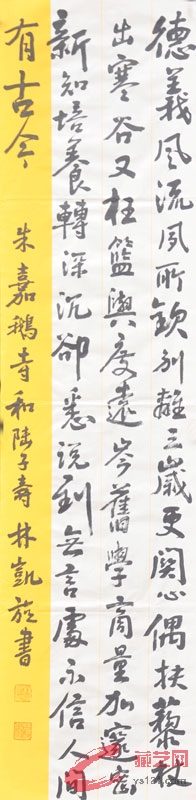 德義風流夙所欽別離三載更關心偶扶藜杖
出寒谷又枉籃輿度遠岑舊學商量加邃密
新知培養轉深沉卻愁說到無言處不信人間
有古今
朱嘉鵝寺和陸子壽 林凱旋書